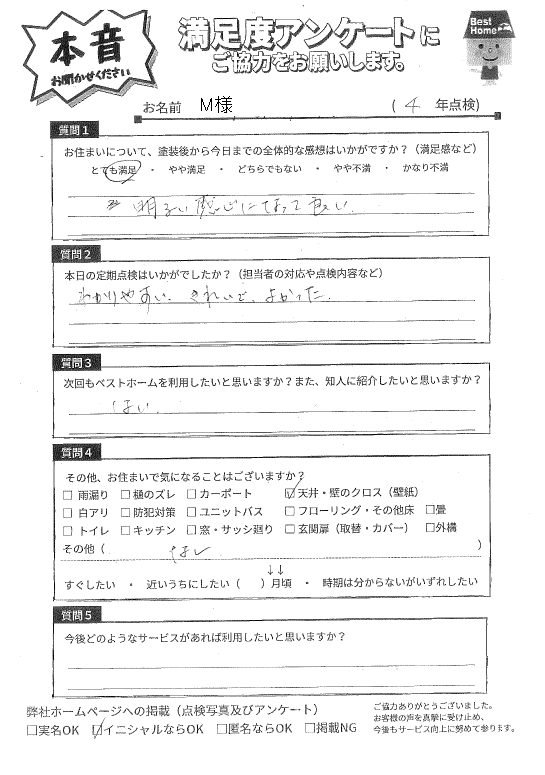 本音
お聞かせください
満足度アンケートに
ご協力をお願いします。
Best Home
お名前 M様 ( 4 年点検)
質問1
お住まいについて、塗装後から今日までの全体的な感想はいかがですか？（満足感など）
とても満足 ・ やや満足 ・ どちらでもない ・ やや不満 ・ かなり不満
明るい感じになって良い.
質問2
本日の定期点検はいかがでしたか？（担当者の対応や点検内容など）
わかりやすい. きれいで、よかった.
質問3
次回もベストホームを利用したいと思いますか？また、知人に紹介したいと思いますか？
はい.
質問4
その他、お住まいで気になることはございますか？
□ 雨漏り □ 樋のズレ □ カーポート ☑ 天井・壁のクロス（壁紙）
□ 白アリ □ 防犯対策 □ ユニットバス □ フローリング・その他床 □畳
□ トイレ □ キッチン □ 窓・サッシ廻り □ 玄関扉（取替・カバー） □外構
その他（ ）
↓↓
すぐしたい ・ 近いうちにしたい（ ）月頃 ・ 時期は分からないがいずれしたい
質問5
今後どのようなサービスがあれば利用したいと思いますか？
弊社ホームページへの掲載（点検写真及びアンケート）
□実名OK ☑イニシャルならOK □匿名ならOK □掲載NG
ご協力ありがとうございました。
お客様の声を真摯に受け止め、
今後もサービス向上に努めて参ります。